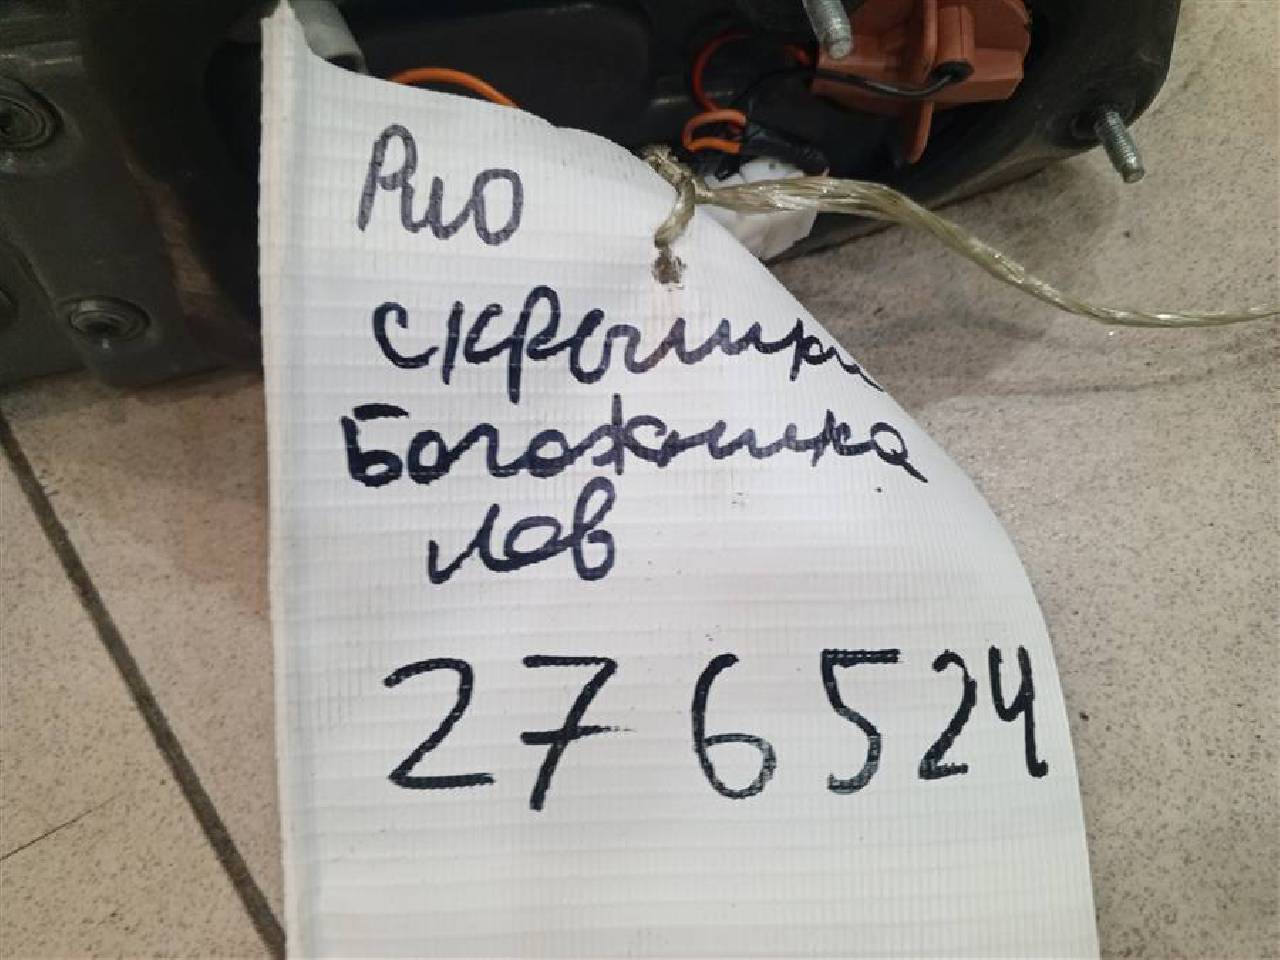 Рио
с крышки
Багажника
лев
276524